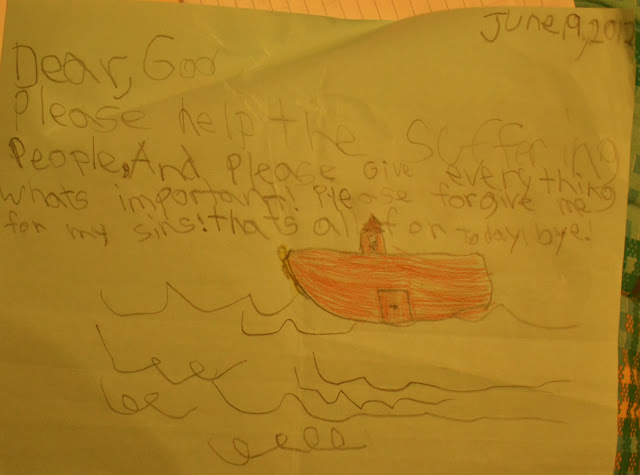 June,19,201
Dear, God
Please help the suffering
People. And Please Give everything
whats important! Please forgive me
for my sins! thats all for today! bye!